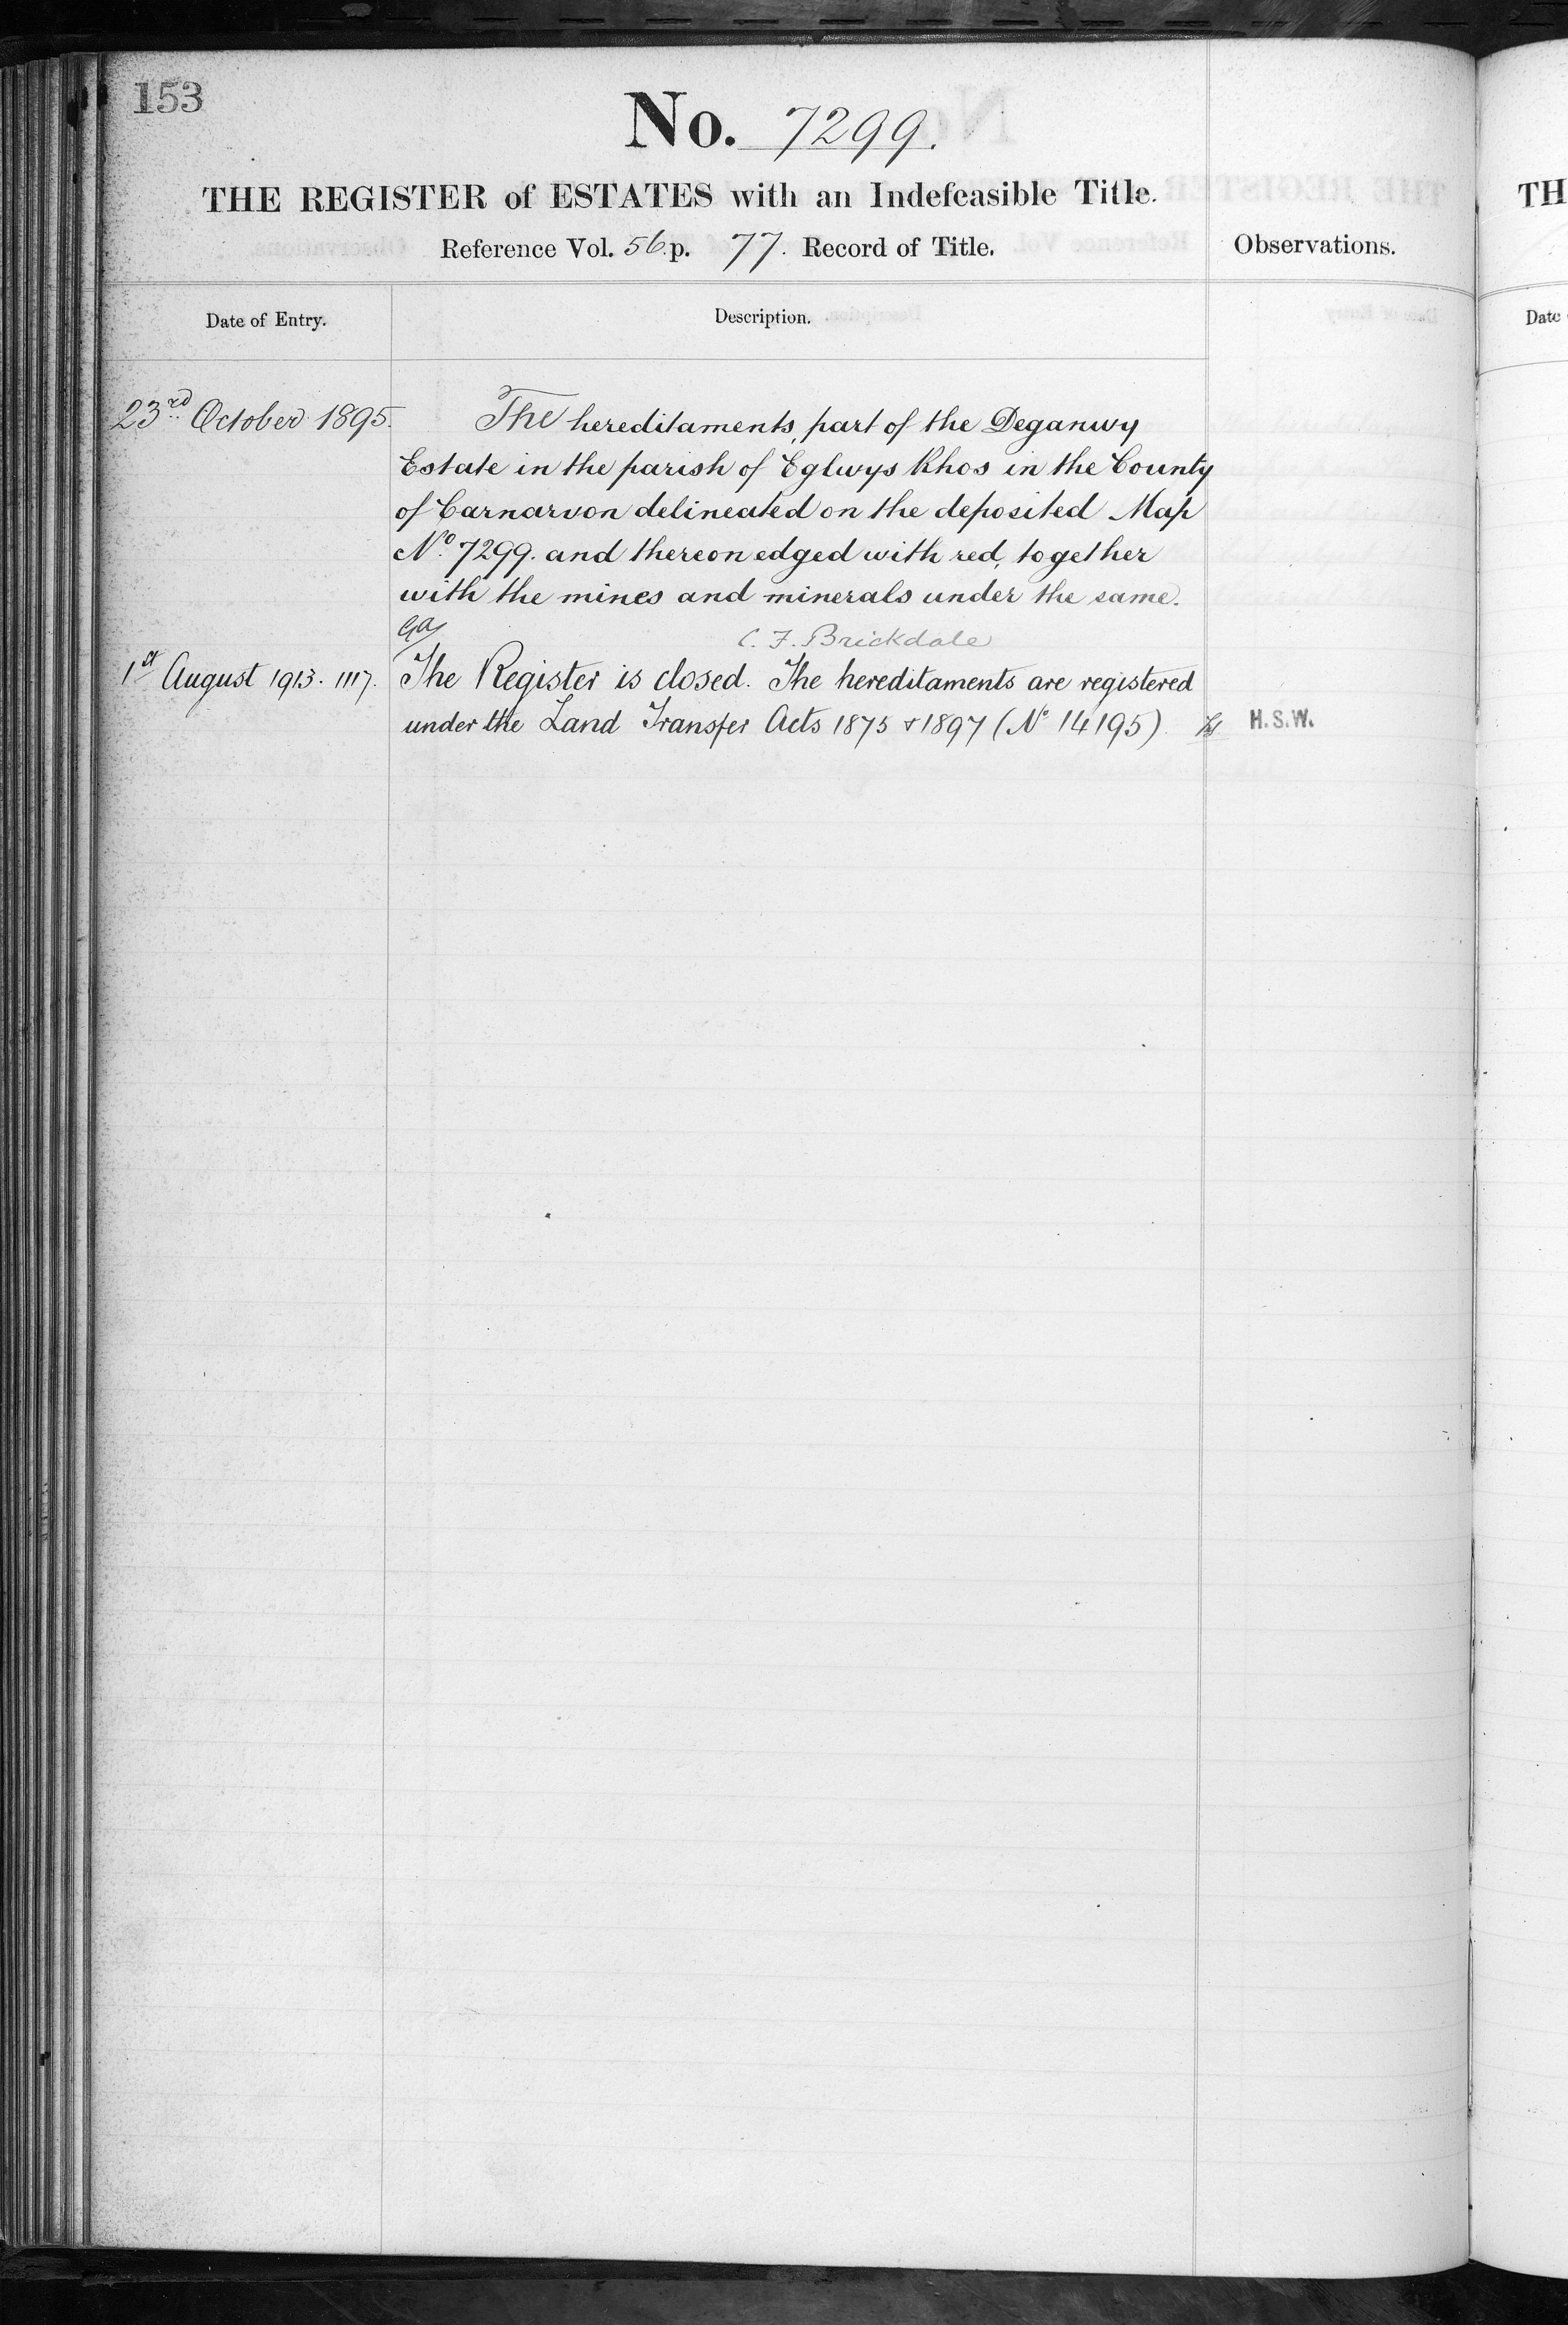 153
No. 7299.
THE REGISTER of ESTATES with an Indefeasible Title.
Reference Vol. 56. p. 77. Record of Title.
Observations.
Date of Entry.
Description.
23rd October 1895.
The hereditaments, part of the Deganwy
Estate in the parish of Eglwys Rhos in the County
of Carnarvon delineated on the deposited Map
No. 7299. and thereon edged with red, together
with the mines and minerals under the same.
C. F. Brickdale
1st August 1913. 1117.
The Register is closed. The hereditaments are registered
under the Land Transfer Acts 1875 & 1897 (No 14195)
H.S.W.
TH
Date